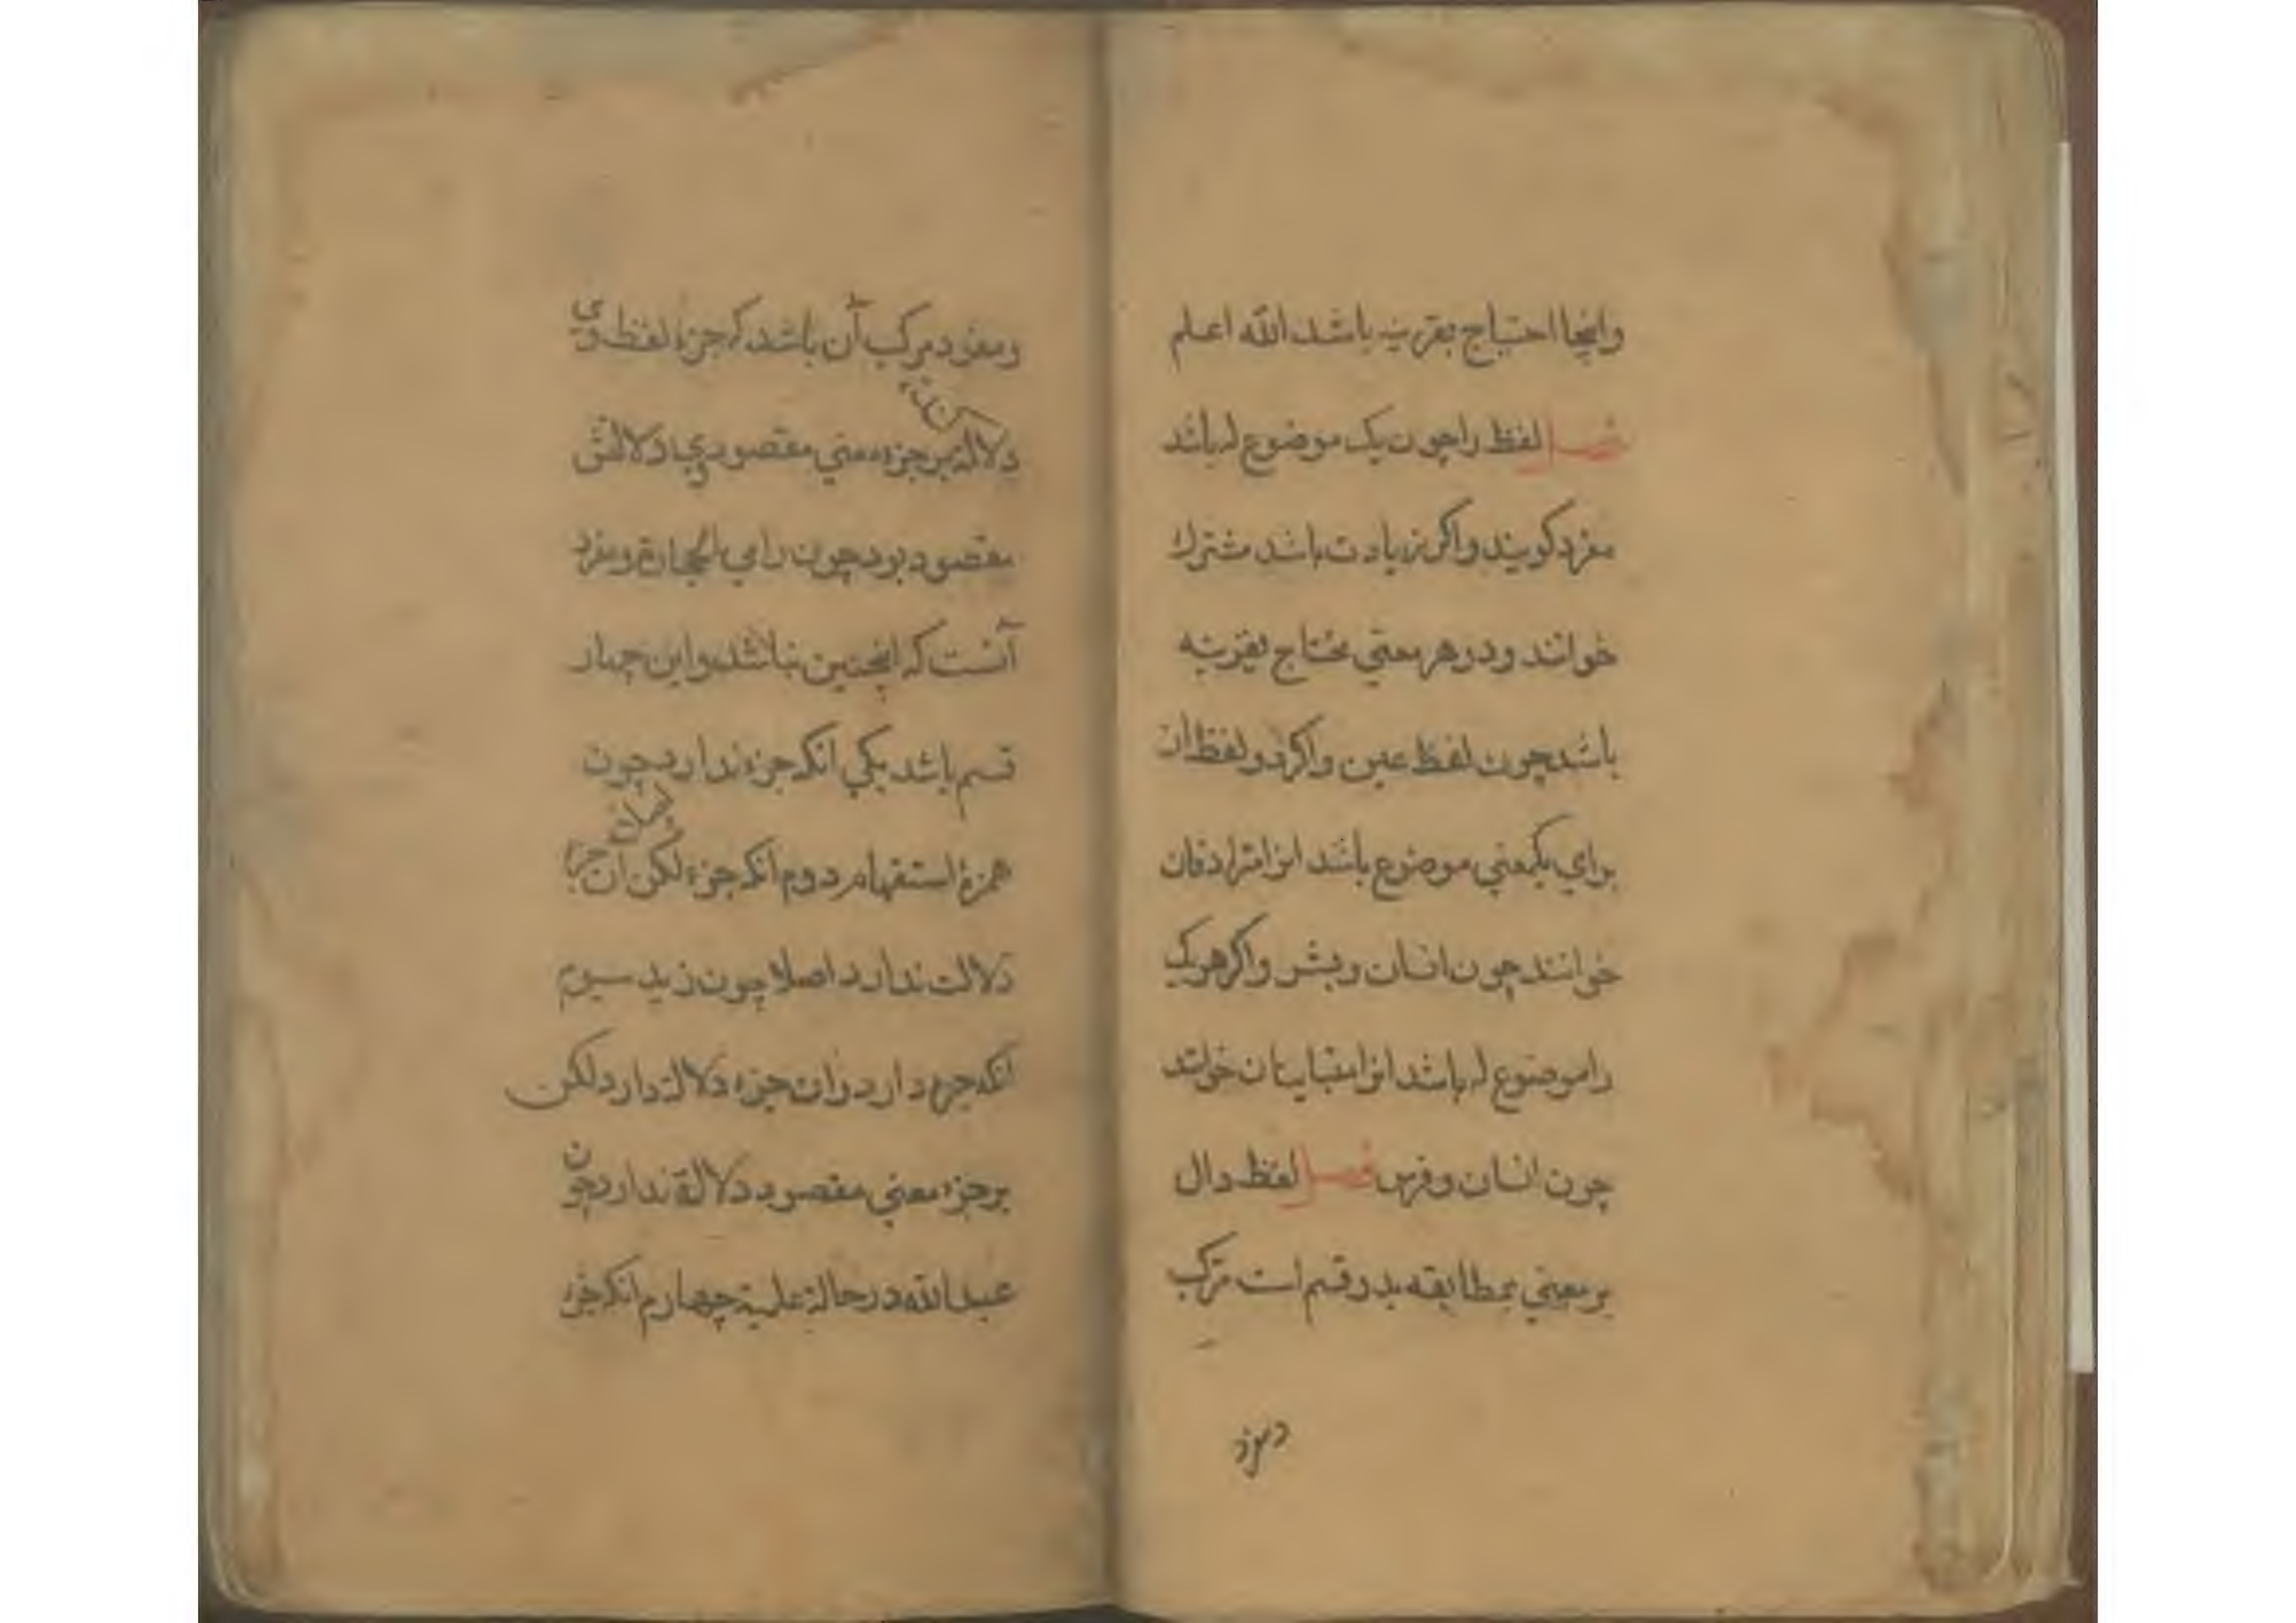 واینجا احتیاج بقرینه باشد الله اعلم
فصل لفظ را چون یک موضوع له باشد
مفرد کویند واکر زیادت باشد مشترك
خوانند ودر هر معنی محتاج بقرینه
باشد چون لفظ عین واکر دو لفظ از
برای یکمعنی موضوع باشد انرا مترادفان
خوانند چون انسان وبشر واکر هر یک
را موضوع له باشد انرا متباینان خوانند
چون انسان وفرس فصل لفظ دال
بر معنی بمطابقه بدو قسم است مرکب
ومفرد
ومفرد مرکب آن باشد که جزء لفظ وی
دلالة کند بر جزء معنی مقصود وی دلالتش
مقصود بود چون رامی الحجارة ومفرد
آنست که اینچنین نباشد واین چهار
قسم باشد یکی انکه جزء ندارد چون
همزۀ استفهام دوم انکه جزء لکن آن جزء
دلالت ندارد اصلا چون زید سیوم
انکه جزء دارد وان جزء دلالة دارد لکن
بر جزء معنی مقصود دلالة ندارد چون
عبدالله در حالة علمیة چهارم انکه جزء